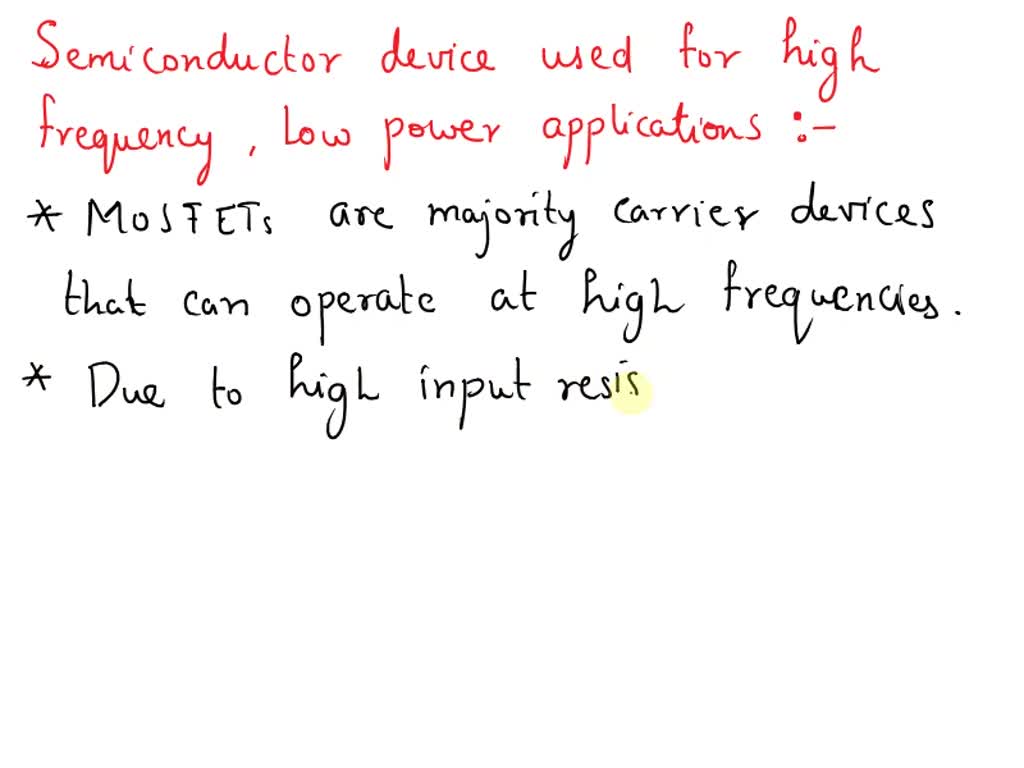 Semiconductor device used for high
frequency, Low power applications :-
* MOSFETs are majority carrier devices
that can operate at high frequencies.
* Due to high input resis